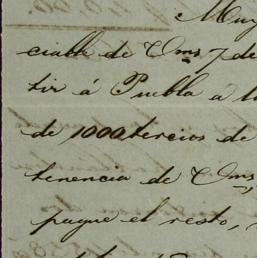 Muy
ciable de Vms 7 de
tir á Puebla a
de 1000 tercios de
tenencia de Vms,
pague el resto,